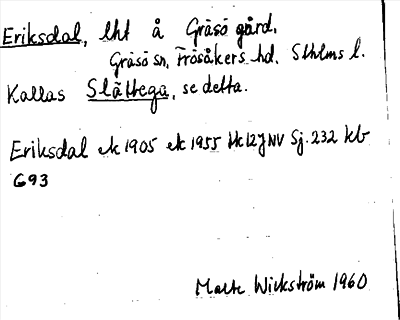 Eriksdal, lht å Gräsö gård,
Gräsö sn, Frösåkers hd, Sthlms l.
Kallas Slättega, se detta.
Eriksdal ek 1905 ek 1955 bl 12J NV Sj. 232 kb
G93
Malte Wickström 1960